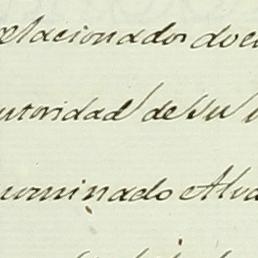 relacionados doc
utoridad de su
uminado Alva